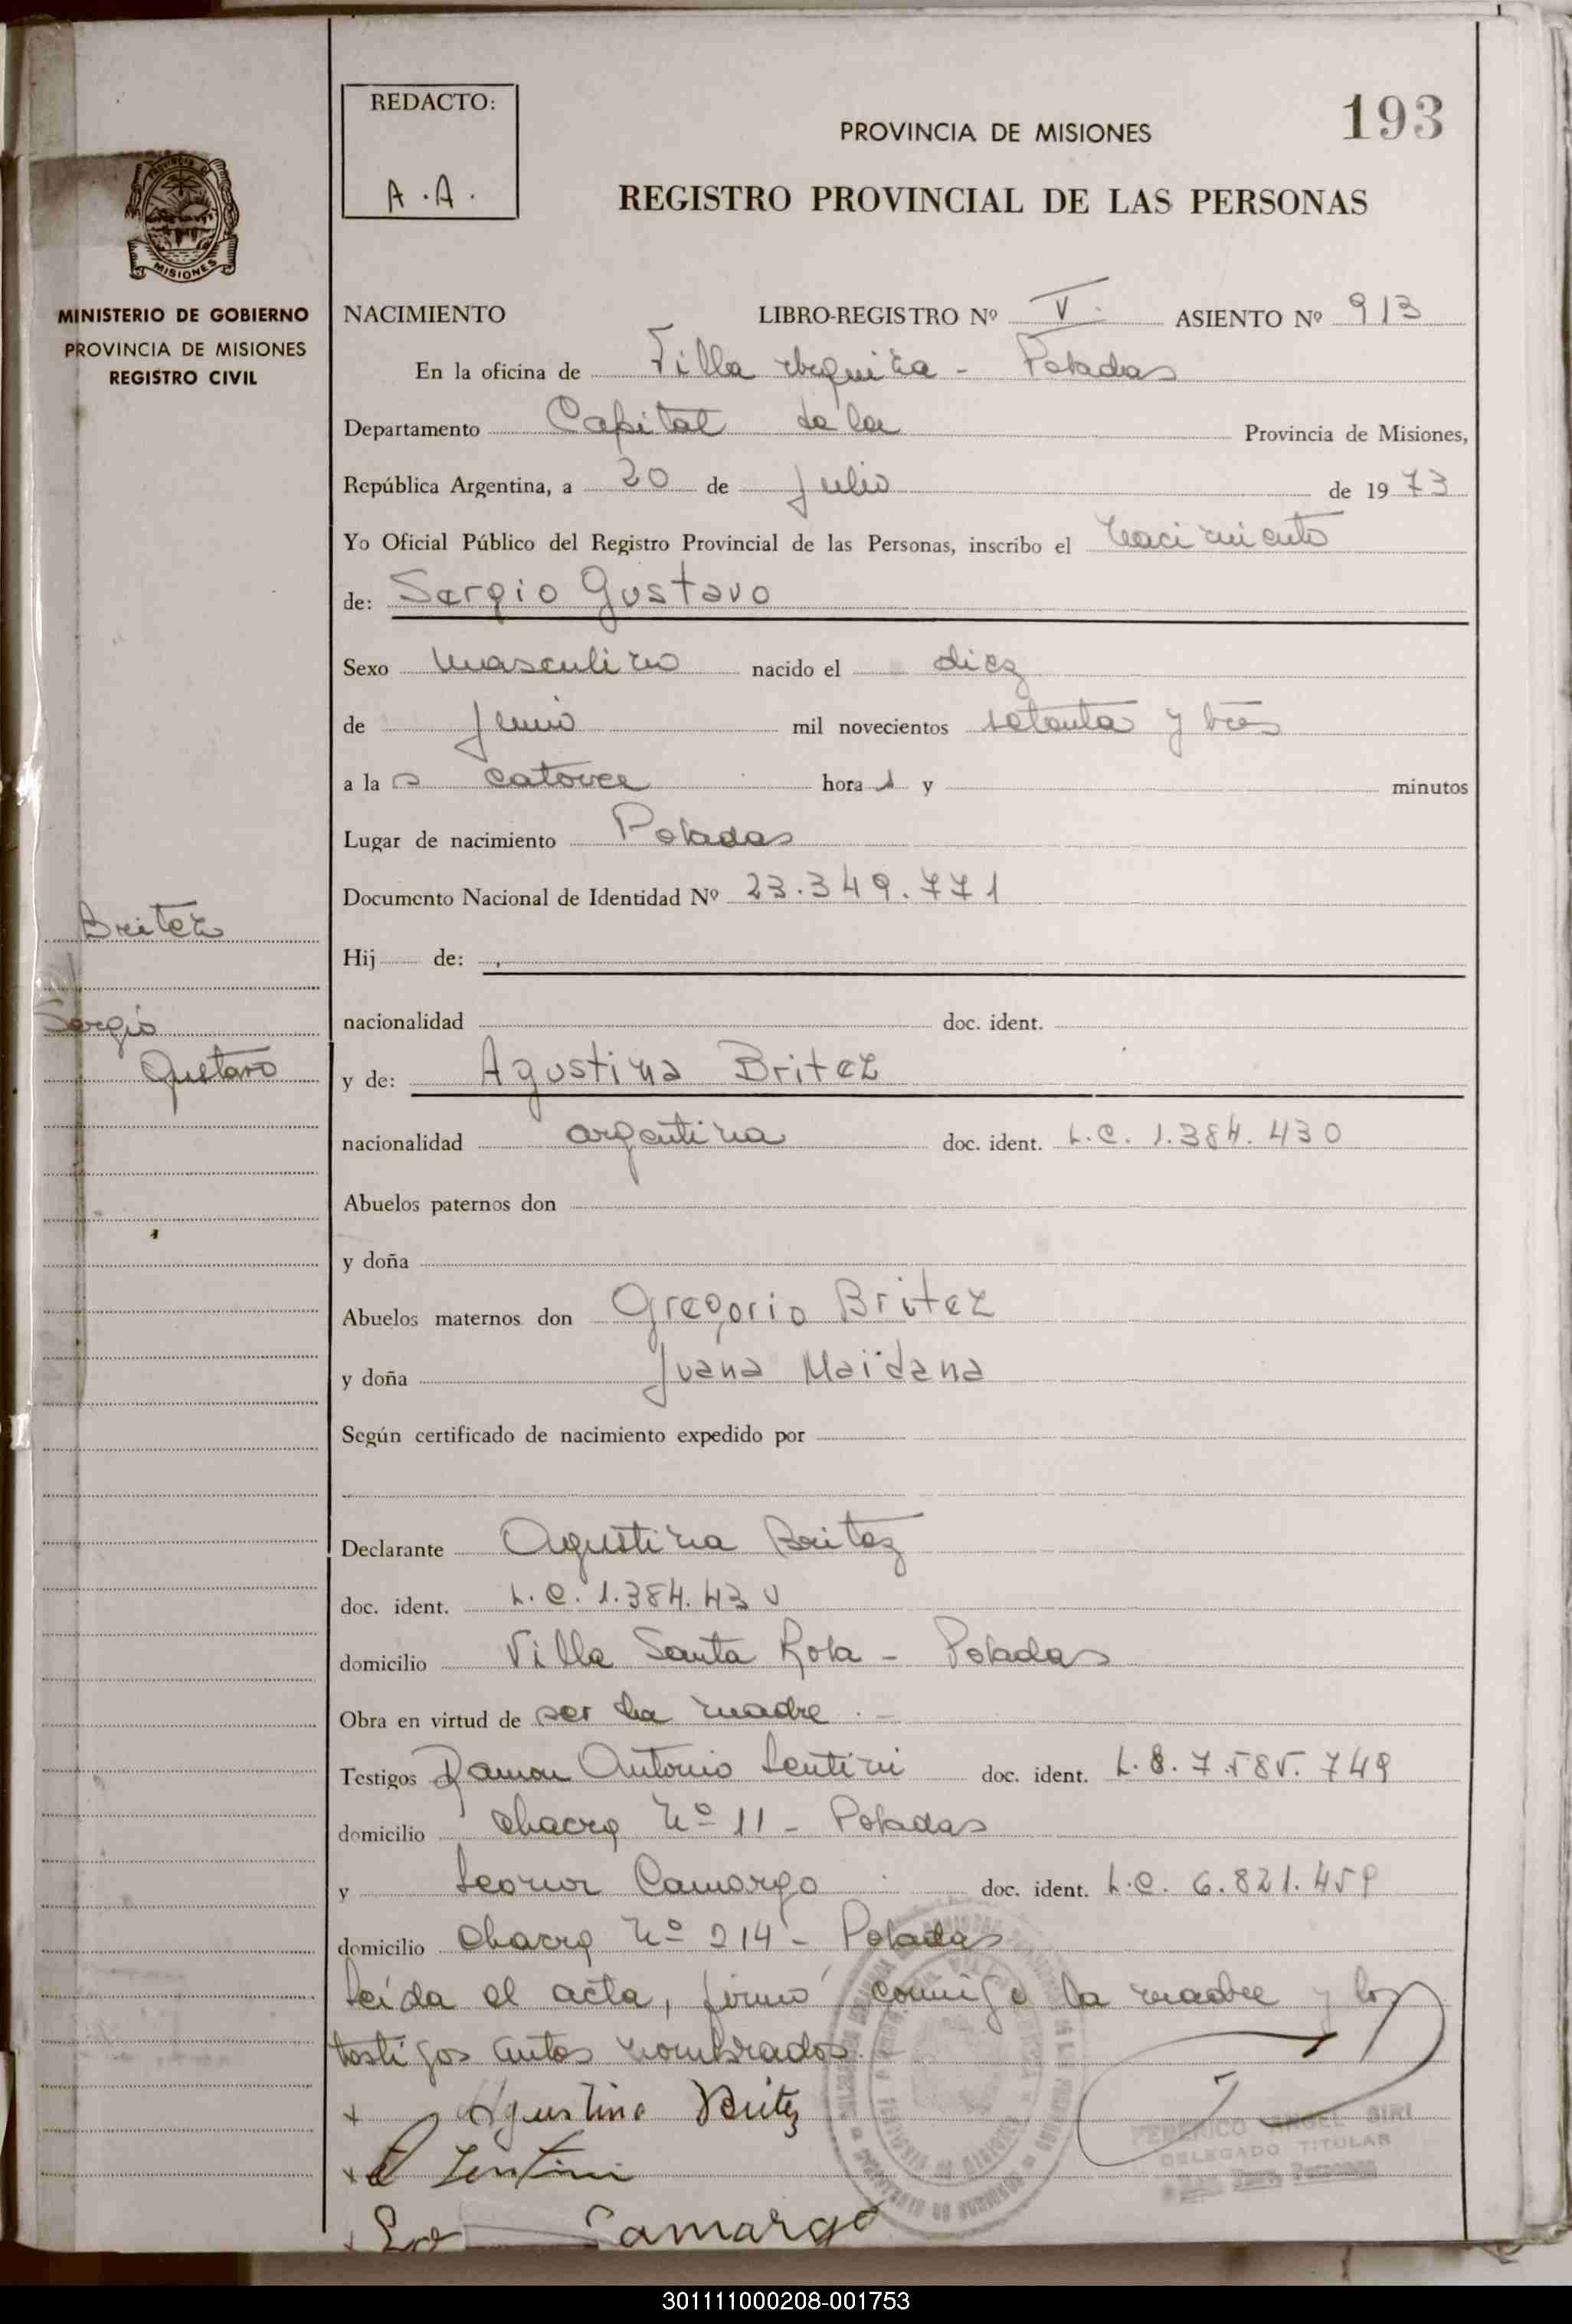 193
REDACTO:
A.A.
PROVINCIA DE MISIONES
REGISTRO PROVINCIAL DE LAS PERSONAS
MISIONES
MINISTERIO DE GOBIERNO
PROVINCIA DE MISIONES
REGISTRO CIVIL
NACIMIENTO LIBRO-REGISTRO Nº V. ASIENTO Nº 913
En la oficina de Villa Urquiza - Posadas
Departamento Capital de la Provincia de Misiones,
República Argentina, a 20 de Julio de 1973
Yo Oficial Público del Registro Provincial de las Personas, inscribo el nacimiento
de: Sergio Gustavo
Sexo masculino nacido el diez
de Junio mil novecientos setenta y tres
a las catorce horas y minutos
Lugar de nacimiento Posadas
Documento Nacional de Identidad Nº 23.349.771
Britez
Sergio
Gustavo
Hij de:
nacionalidad doc. ident.
y de: Agustina Britez
nacionalidad argentina doc. ident. L.C. 1.384.430
Abuelos paternos don
y doña
Abuelos maternos don Gregorio Britez
y doña Juana Maidana
Según certificado de nacimiento expedido por
Declarante Agustina Britez
doc. ident. L.C. 1.384.430
domicilio Villa Santa Rosa - Posadas
Obra en virtud de ser la madre.-
Testigos Ramon Antonio Lentini doc. ident. L.E. 7.585.749
domicilio chacra Nº 11 - Posadas
y Leonor Camargo doc. ident. L.C. 6.821.459
domicilio chacra Nº 214 - Posadas
Leída el acta, firmó conmigo la madre y los
testigos antes nombrados.
x Agustina Britez
x Lentini
Camargo
FEDERICO ANGEL SIRI
DELEGADO TITULAR
301111000208-001753